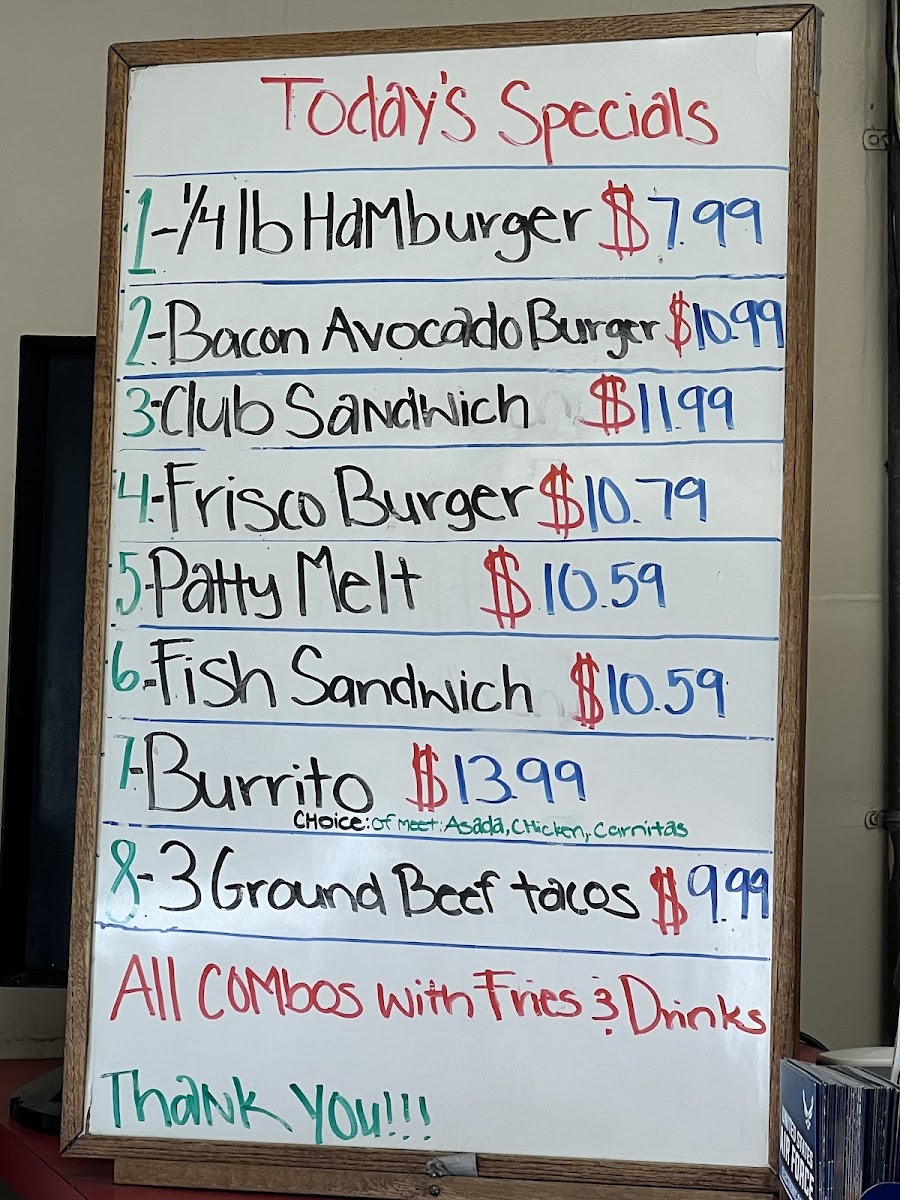 Today's Specials
1-1/4 lb Hamburger $7.99
2-Bacon Avocado Burger $10.99
3-Club Sandwich $11.99
4-Frisco Burger $10.79
5-Patty Melt $10.59
6-Fish Sandwich $10.59
7-Burrito $13.99
CHoice: of meet: Asada, CHicken, Carnitas
8-3 Ground Beef tacos $9.99
All Combos with Fries & Drinks
Thank You!!!
UNITED STATES
AIR FORCE